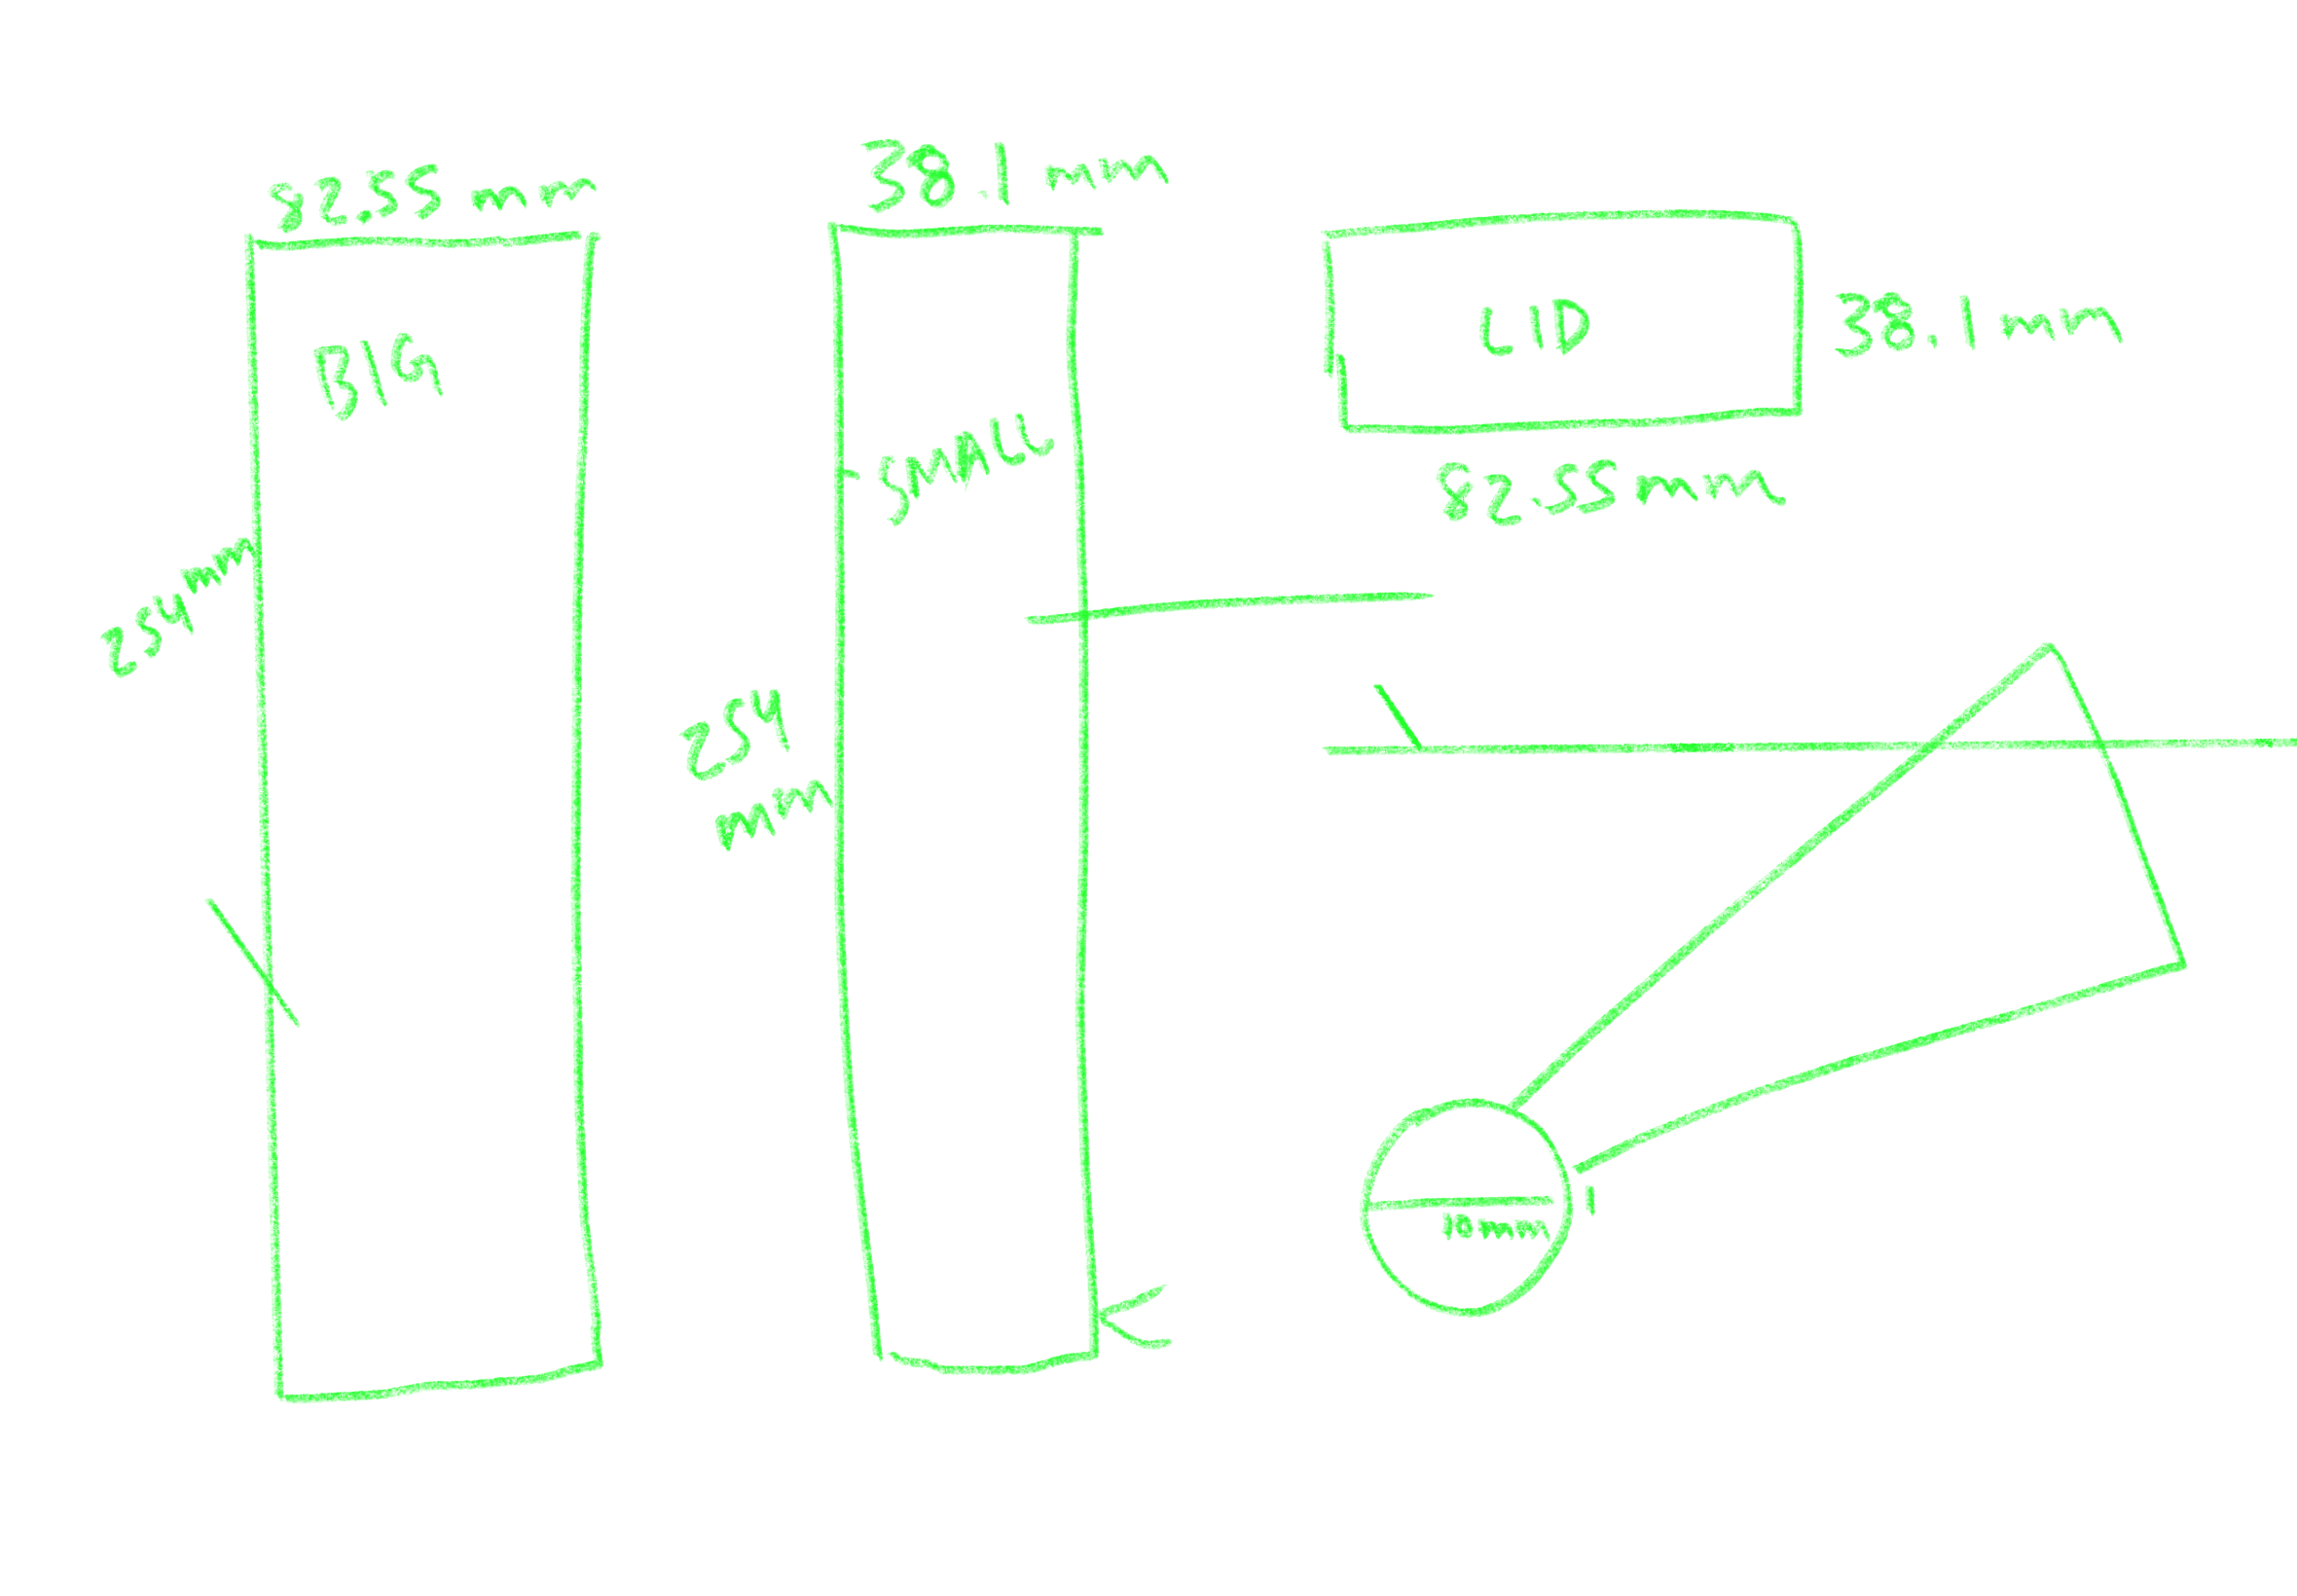 82.55 mm
BIG
254mm
38.1 mm
SMALL
254
mm
LID
38.1mm
82.55mm
10mm